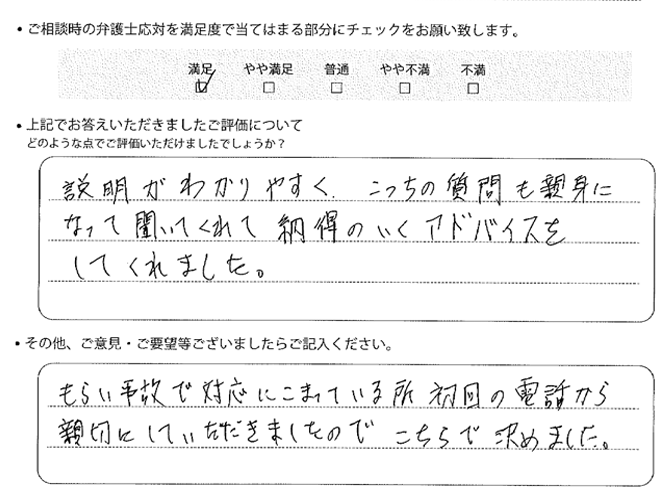 ・ご相談時の弁護士応対を満足度で当てはまる部分にチェックをお願い致します。
満足 やや満足 普通 やや不満 不満
・上記でお答えいただきましたご評価について
どのような点でご評価いただけましたでしょうか？
説明がわかりやすく、こっちの質問も親身に
なって聞いてくれて納得のいくアドバイスを
してくれました。
・その他、ご意見・ご要望等ございましたらご記入ください。
もらい事故で対応にこまっている所初回の電話から
親切にしていただきましたのでこちらで決めました。